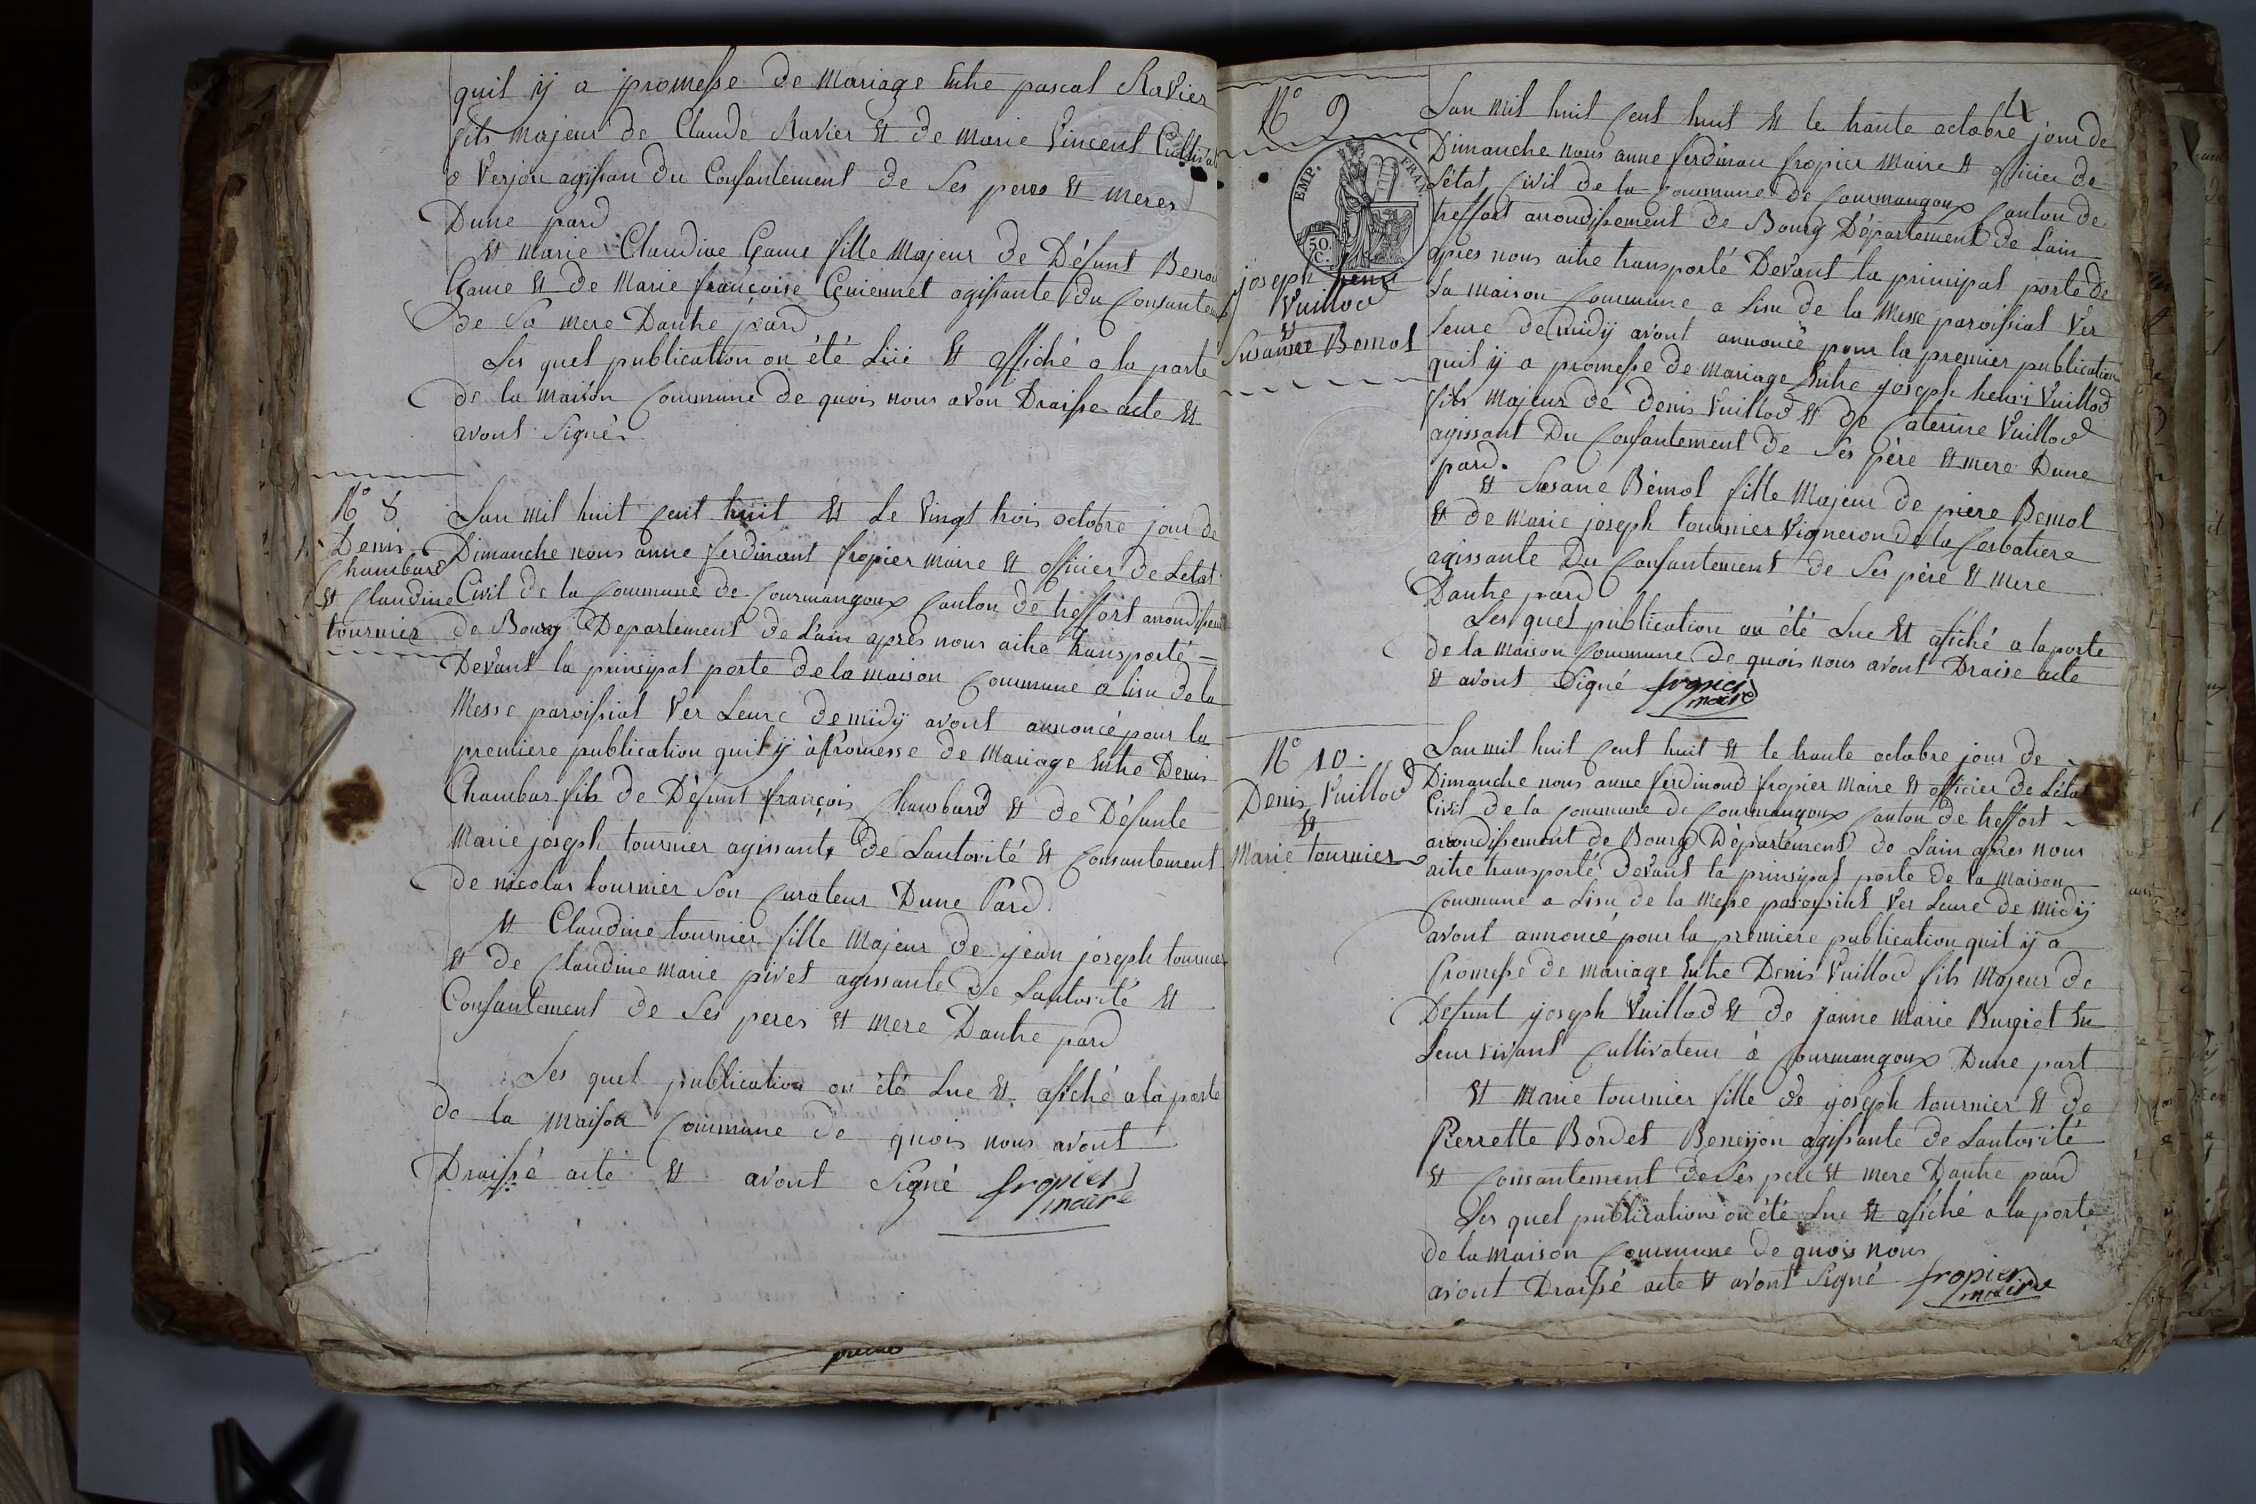 quil ij a promesse de mariage Entre pascal Ravier
fils majeur de Claude Ravier Et de marie Vincent
a Verjon agissan du Consantement de Ses peres Et meres
Dune pard
Et marie Claudine Game fille Majeur de Défunt
Game Et de Marie françoise agissante du
de Sa mere Dautre pard
Les quel publication on été Lüe Et affiché a la porte
de la maison Commune de quois nous avon Draisse acte Et
avont Signés
N° 8
Denis
Chambard
Et Claudine
tournier
Lan mil huit cent huit Et Le Vingt trois octobre jour de
Dimanche nous anne ferdinant fropier maire Et officier de Letat
Civil de la Commune de Courmangoux Canton de treffort
de Bourg Departement de Lain apres nous aitre transporté
Devant la prinsipal porte de la maison Commune a lisu de la
Messe paroissial Ver Leure de midy avont annoncé pour la
premiere publication quil ij à Promesse de Mariage Entre Denis
Chambar fils de Défunt françois Chambard Et de Défunte
Marie joseph tournier agissant de Lautorité Et Consantement
de nicolas tournier Son Curateur Dune Pard
Et Claudine tournier fille Majeur de jean joseph tournier
Et de Claudine marie pivet agissante de Lautorité Et
Consantement de Ses peres Et mere Dautre pard
Les quel publication on été Lue Et afiché a la porte
de la maison Commune de quois nous avont
Draissé acte Et avont Signé fropier
maire
N° 9
EMP. FRAN.
50.
C.
joseph henri
Vuillod
Et
Susanne Bemol
Lan mil huit Cent huit Et le trante octobre jour de
Dimanche nous anne ferdinan fropier Maire Et officier de
Létat Civil de la Commune de Courmangoux Canton de
treffort arrondissement de Bourg Département de Lain
apres nous aitre transporté Devant la prinsipal porte de
La maison Commune a Lisu de la Messe paroissial Ver
Leure de midy avont annoncé pour la premier publication
quil ij a promesse de mariage Entre joseph henri Vuillod
fils majeur de denis Vuillod Et de Caterine Vuillod
agissant Du Consantement de Ses père Et mere Dune
pard.
Et Susane Bémol fille Majeur de piere Bemol
Et de Marie joseph tournier Vigneron de la
agissante Du Consantement de Ses père Et mere
Dautre pard
Les quel publication on été Lue Et afiché a la porte
de la maison Commune de quois nous avont Draise acte
Et avont Signé fropier
maire
N° 10.
Denis Vuillod
Et
Marie tournier
Lan mil huit Cent huit Et le trante octobre jour de
Dimanche nous anne ferdinand fropier Maire Et officier de Létat
Civil de la Commune de Courmangoux Canton de treffort
arondissement de Bourg Département de Lain apres nous
aitre transporté Devant la prinsipal porte de la maison
Commune a Lisu de la Messe paroissial Ver Leure de midy
avont annoncé pour la premiere publication quil ij a
Promesse de mariage Entre Denis Vuillod fils Majeur de
Défunt joseph Vuillod Et de janne Marie En
Leur vivant Cultivateur à Courmangoux Dune part
Et Marie tournier fille de joseph tournier Et de
Pierrette Bordet agissante de Lautorité
Et Consantement de Ses pere Et mere Dautre pard
Les quel publications on été Lue Et afiché a la porte
de la maison Commune de quois nous
avont Draissé acte Et avont Signé fropier
maire